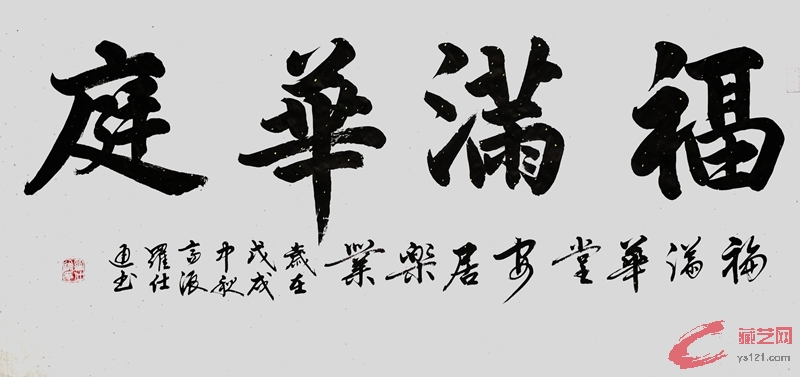 福滿華庭
福滿華堂安居樂業
歲在
戊戌
中秋
高源
羅仕
通书
藏艺网
ys121.com